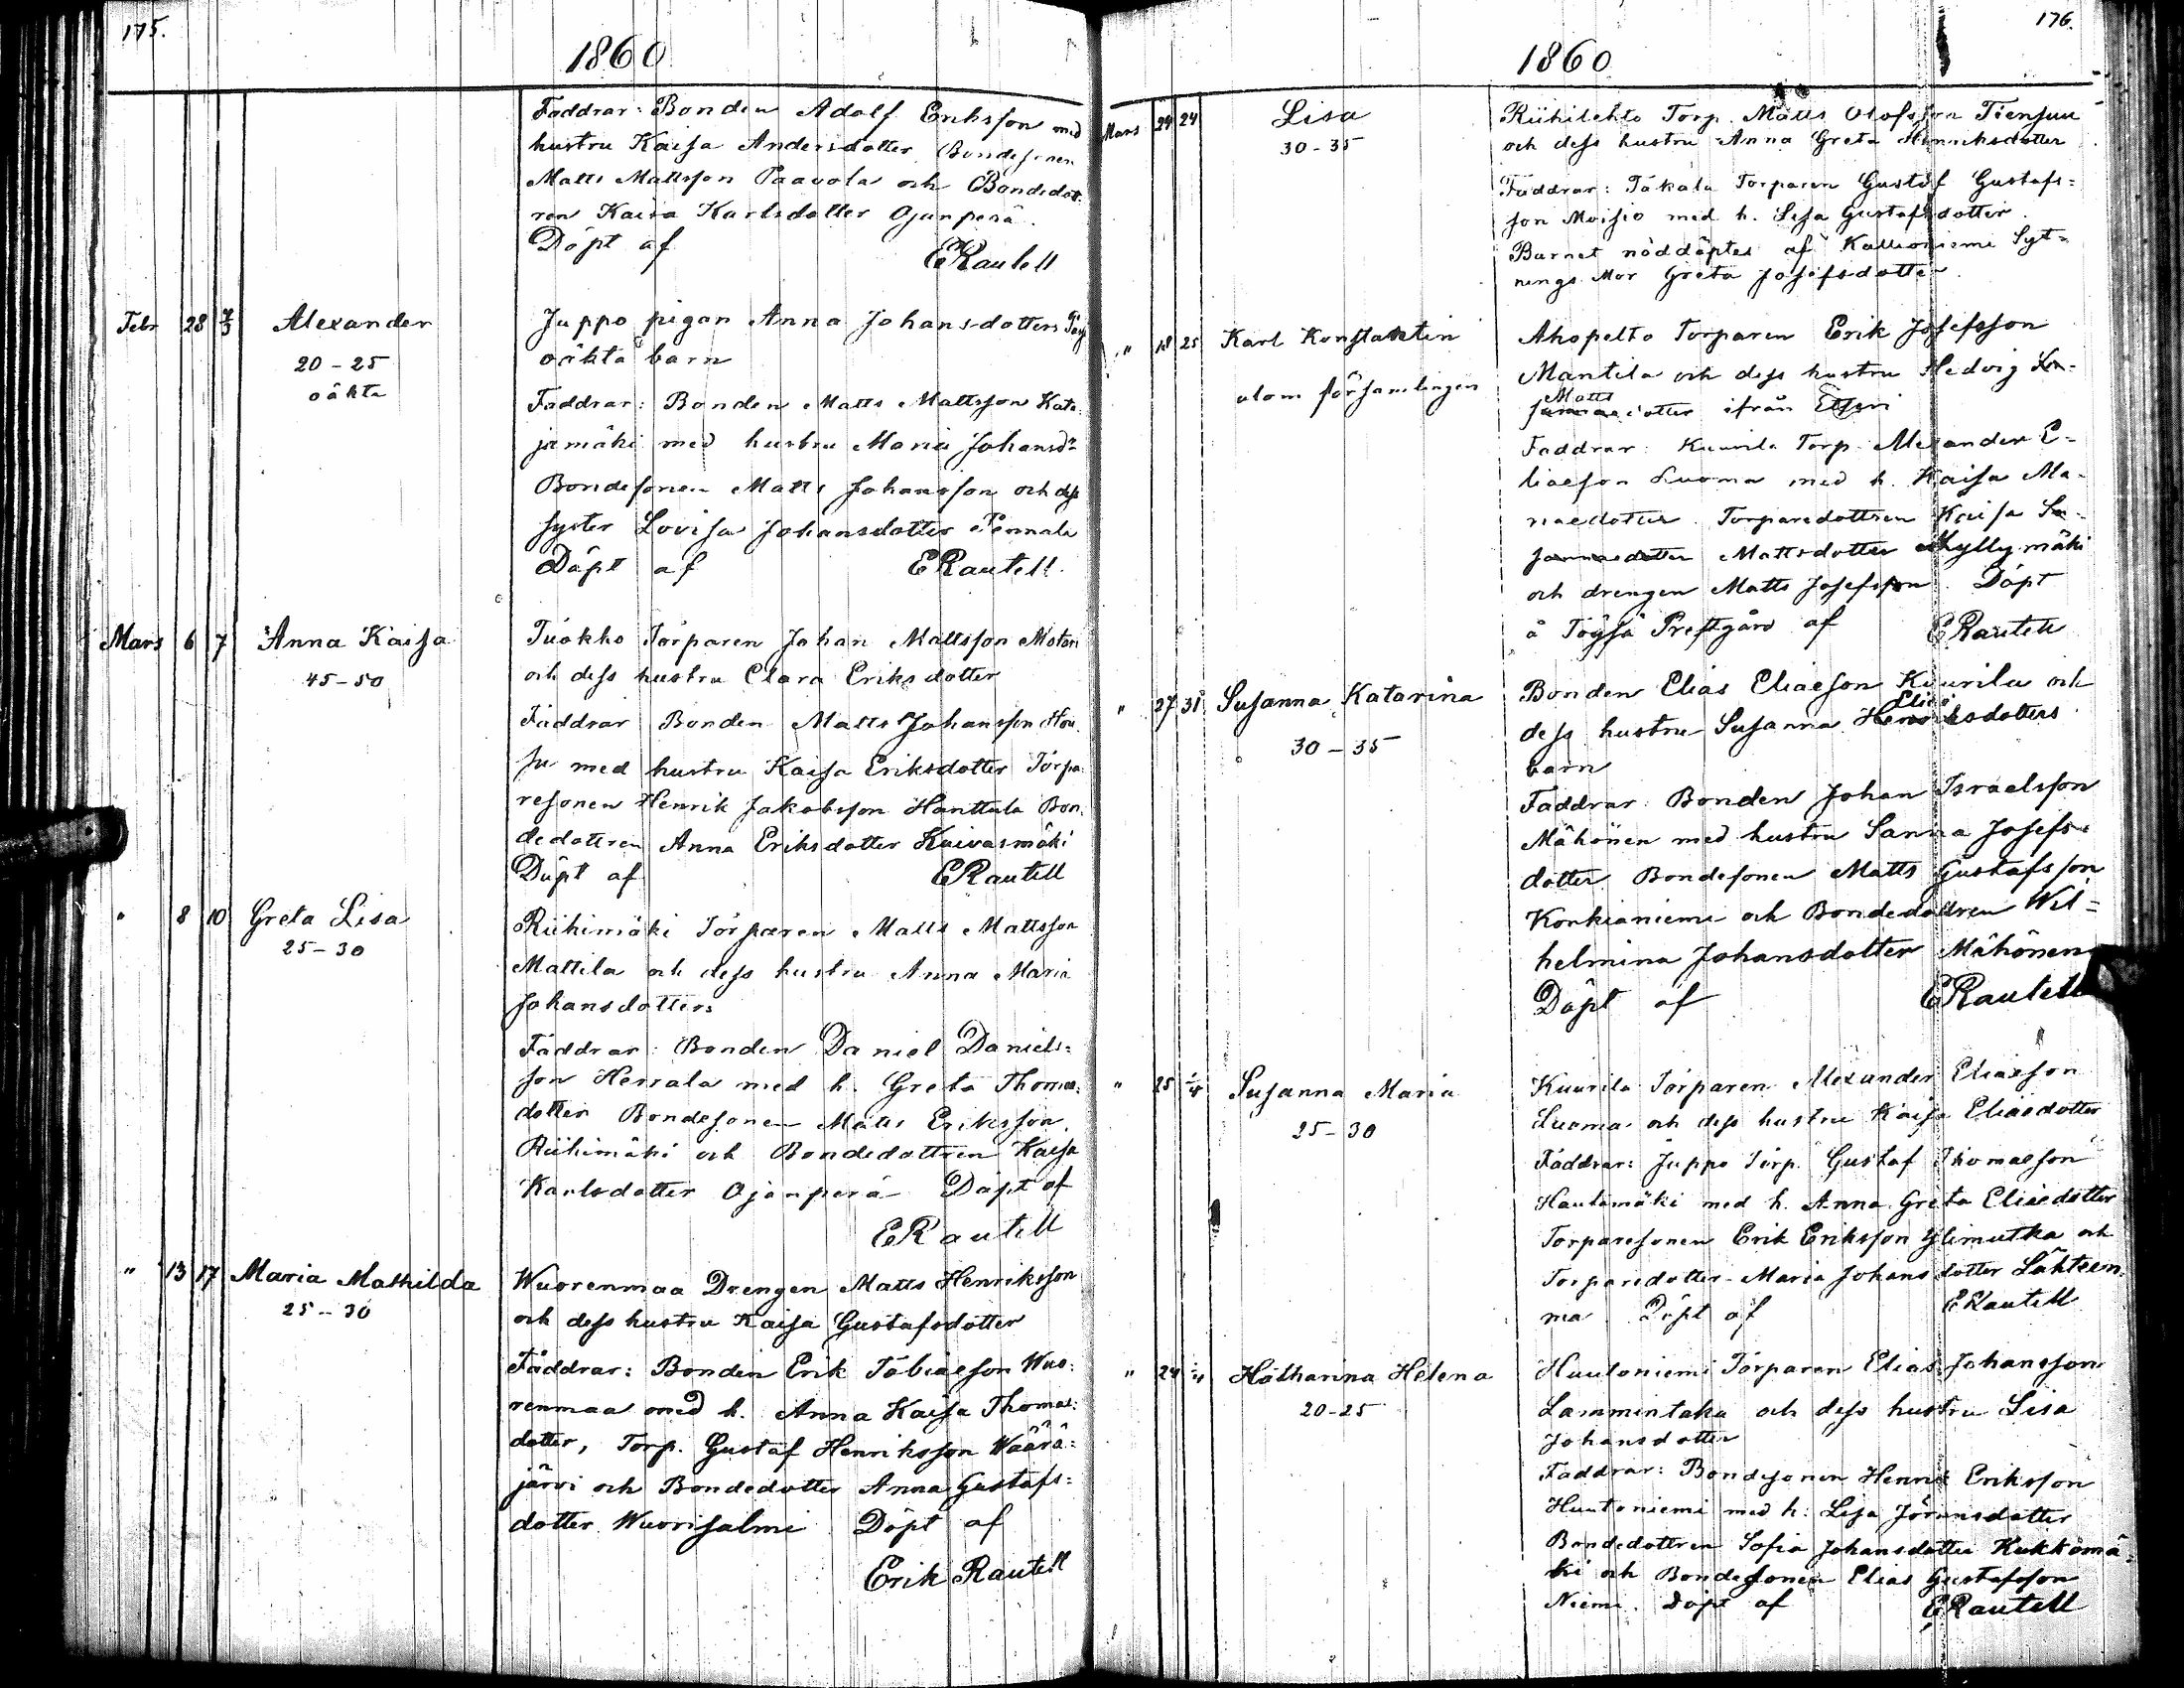 175.
1860
Faddrar: Bonden Adolf Eriksson med
hustru Kaisa Andersdotter Bondesonen
Matts Mattsson Paavola och Bondedot-
ren Kaisa Karlsdotter Ojanperä.
Döpt af ERautell
Febr 28 7/3 Alexander Juppo pigan Anna Johansdotters
20-25 oäkta barn
oäkta
Faddrar: Bonden Matts Mattsson Kata-
jamäki med hustru Maria Johansdr
Bondesonen Matts Johansson och dess
syster Lovisa Johansdotter Pennala
Döpt af ERautell.
Mars 6 7 Anna Kaisa Tuokko Torparen Johan Mattsson
45-50 och dess hustru Clara Eriksdotter
Faddrar Bonden Matts Johansson
med hustru Kaisa Eriksdotter Torpa-
resonen Henrik Jakobsson Hanttula Bon-
dedottren Anna Eriksdotter Kuivasmäki
Döpt af ERautell
" 8 10 Greta Lisa Riihimäki Torparen Matts Mattsson
25-30 Mattila och dess hustru Anna Maria
Johansdotter:
Faddrar: Bonden Daniel Daniels=
son Herrala med h. Greta Thomas=
dotter Bondesonen Matts Eriksson
Riihimäki och Bondedottren Kaisa
Karlsdotter Ojanperä Döpt af
ERautell
" 13 17 Maria Mathilda Wuorenmaa Drengen Matts Henriksson
25-30 och dess hustru Kaisa Gustafsdotter
Faddrar: Bonden Erik Tobiaeson Wuo=
renmaa med h. Anna Kaisa Thomas=
dotter, Torp. Gustaf Henriksson Wäärä=
järvi och Bondedotter Anna Gustafs=
dotter Wuorisalmi Döpt af
Erik Rautell
176.
1860
Mars 24 24 Lisa Riihilehto Torp. Matts Olofsson Tiensuu
30-35 och dess hustru Anna Greta Henriksdotter
Faddrar: Täkala Torparen Gustaf Gustafs=
son Moisio med h. Lisa Gustafsdotter.
Barnet nöddöptes af Kallioniemi Syt=
nings Mor Greta Josefsdotter.
" 18 25 Karl Konstantin Ahopelto Torparen Erik Josefsson
Mantila och dess hustru Hedvig
utom församlingen Matts dotter ifrån Etseri
Faddrar: Kuurila Torp. Alexander E-
liaeson Luoma med h. Kaisa Ma-
naedotter. Torparedottren Kaisa
Mattsdotter Myllymäki
och drengen Matts Josefsson. Döpt
å Töysä Prestgård af ERautell
" 27 31 Susanna Katarina Bonden Elias Eliaeson Kuurila och
30-35 dess hustru Susanna Elias Henriksdotters
barn
Faddrar: Bonden Johan Israelsson
Mähönen med hustru Sanna Josefs-
dotter. Bondesonen Matts Gustafsson
Konkianiemi och Bondedottren Wil=
helmina Johansdotter Mähönen
Döpt af ERautell
" 25 1/4 Susanna Maria Kuurila Torparen Alexander Eliaeson
25-30 Luoma och dess hustru Kaisa Eliaedotter
Faddrar: Juppo Torp. Gustaf Thomaeson
Hautamäki med h. Anna Greta Eliaedotter
Torparesonen Erik Eriksson Ylimutka och
Torparedotter Maria Johansdotter Lähteen-
ma Döpt af ERautell
" 24 1/4 Katharina Helena Huutoniemi Torparen Elias Johansson
20-25 Lammintaka och dess hustru Lisa
Johansdotter
Faddrar: Bondesonen Henrik Eriksson
Huutoniemi med h: Lisa Jöransdotter
Bondedottren Sofia Johansdotter Kukkomä-
ki och Bondesonen Elias Gustafsson
Niemi. Döpt af ERautell